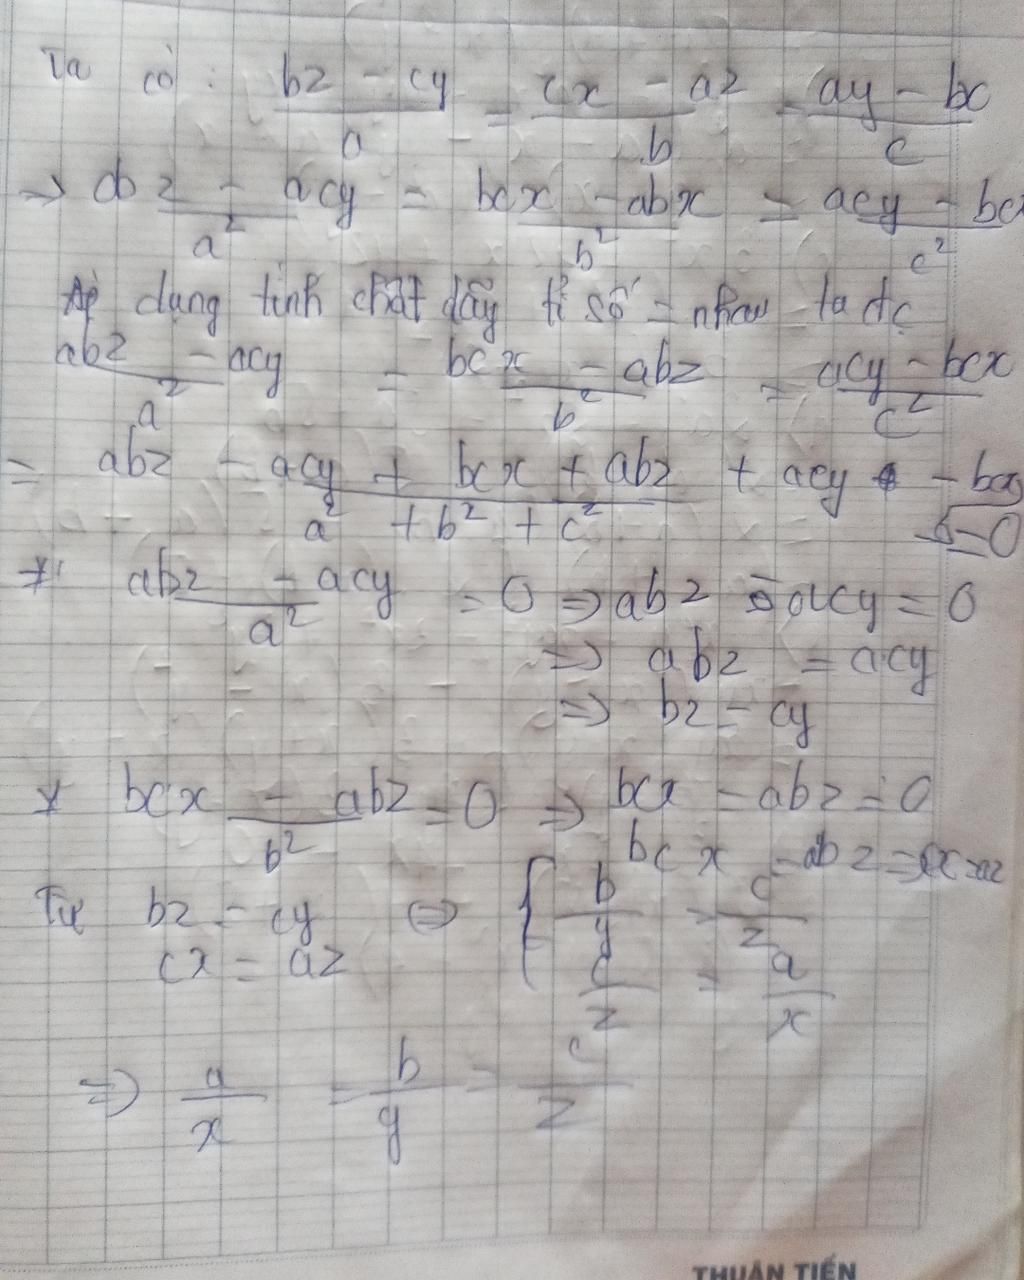 Ta có: bz - cy / a = cx - az / b = ay - bc / c
→ abz - acy / a² = bcx - abx / b² = acy - bcx / c²
Áp dụng tính chất dãy tỉ số = nhau ta đc
abz - acy / a² = bcx - abz / b² = acy - bcx / c²
= abz - acy + bcx + abz + acy - bcx / a² + b² + c² = 0
* abz - acy / a² = 0 ⇒ abz - acy = 0
⇒ abz = acy
⇒ bz = cy
* bcx - abz / b² = 0 ⇒ bcx - abz = 0
bcx = abz ⇒ cx = az
Từ bz = cy ⇔ { b/y = c/z
cx = az c/z = a/x
⇒ a/x = b/y = c/z
THUẬN TIẾN